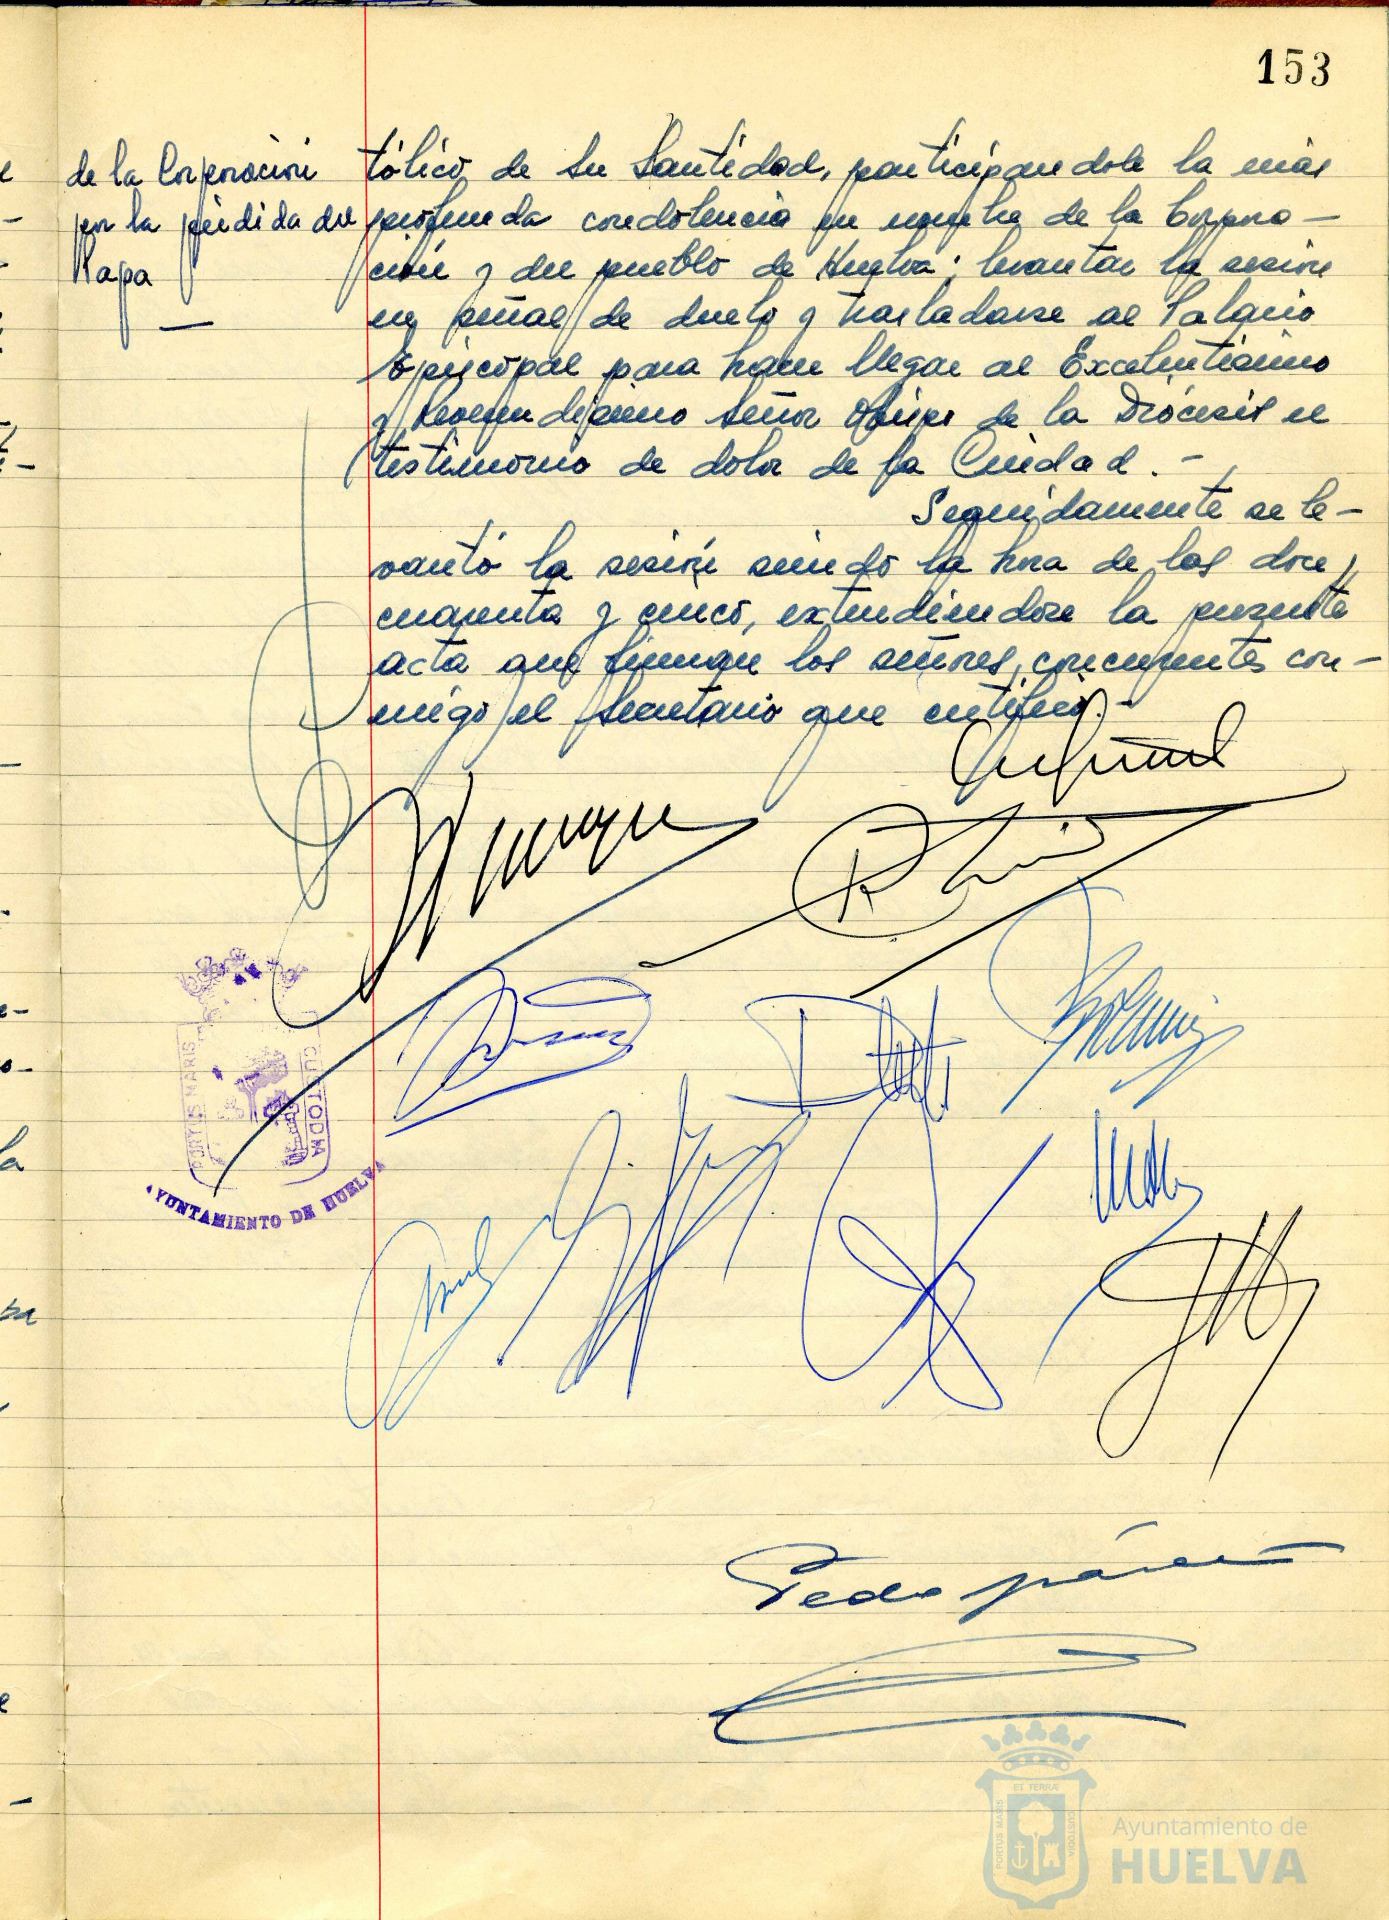 153
de la Corporación
por la pérdida del
Papa
tólico de Su Santidad, participandole la más
profunda condolencia en nombre de la Corpora-
ción y del pueblo de Huelva; levantar la sesión
en señal de duelo y trasladarse al Palacio
Episcopal para hacer llegar al Excelentísimo
y Reverendísimo Señor Obispo de la Diócesis el
testimonio de dolor de la Ciudad.-
Seguidamente se le-
vantó la sesión siendo la hora de las doce
cuarenta y cinco, extendiendose la presente
acta que firman los señores concurrentes con-
migo el Secretario que certifico.-
PORTUS MARIS
CUSTODIA
AYUNTAMIENTO DE HUELVA
Pedro
ET TERRAE
PORTUS MARIS
CUSTODIA
Ayuntamiento de
HUELVA